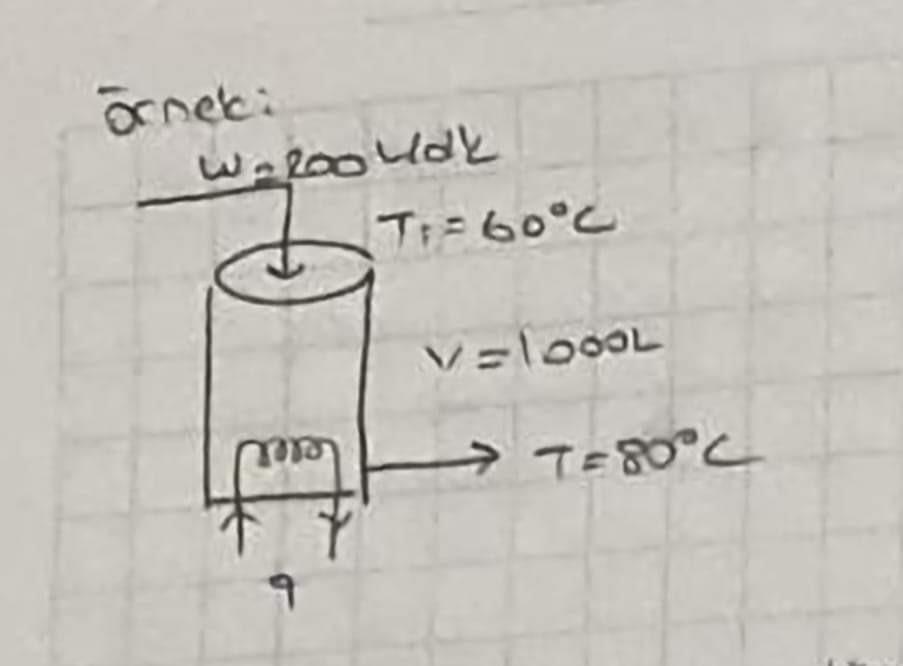 Örnek:
W=200 L/dk
Ti=60°C
V=1000L
T=80°C
q